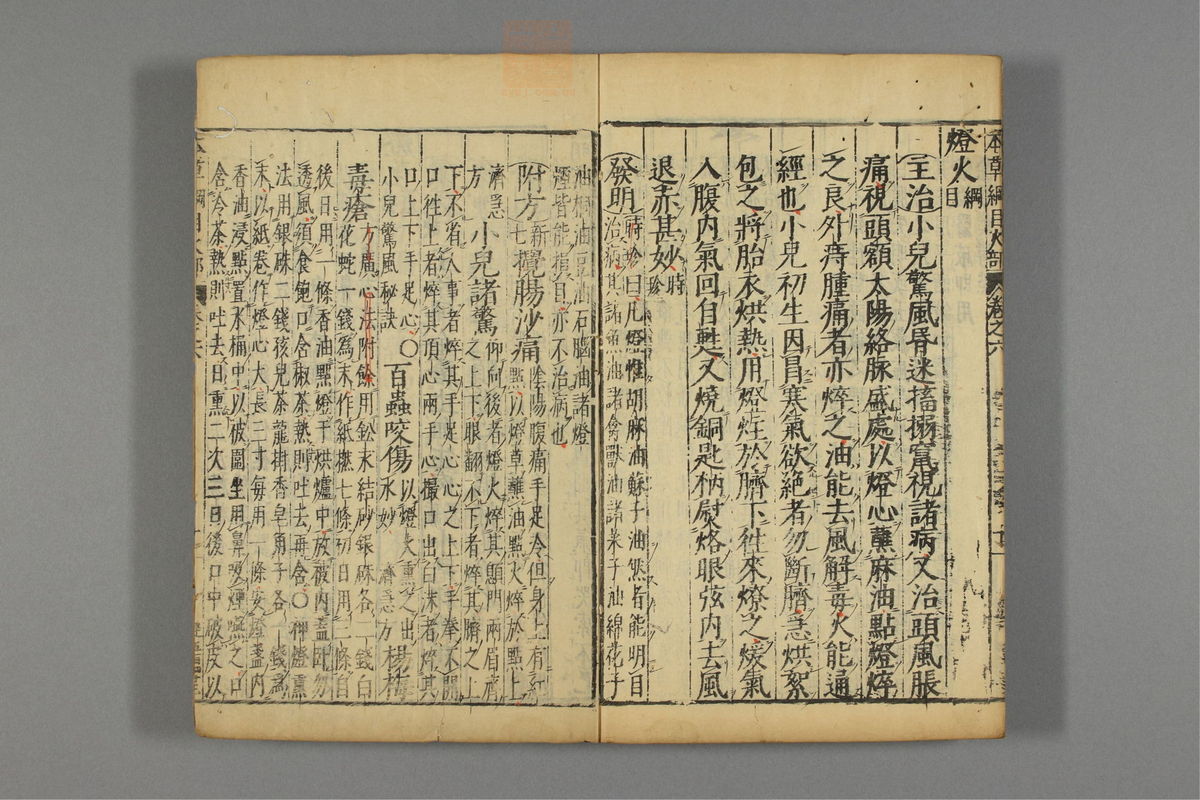 本草綱目火部 卷之六
燈火綱目
主治小兒驚風昏迷搐搦竄視諸病又治頭風脹
痛視頭額太陽絡脉盛處以燈心蘸麻油點燈焠
之良外痔腫痛者亦焠之油能去風解毒火能通
經也小兒初生因冒寒氣欲絶者勿斷臍急烘絮
包之將胎衣烘熱用燈炷於臍下徃來燎之煖氣
入腹內氣回自甦又燒銅匙柄熨烙眼弦內去風
退赤甚妙時珍
發明時珍曰凡燈惟胡麻油蘇子油然者能明目
治病其諸魚油諸禽獸油諸菜子油綿花子
油桐油豆油石腦油諸燈
煙皆能損目亦不治病也
附方新七攪腸沙痛陰陽腹痛手足冷但身上有紅
點以燈草蘸油點火焠於點上
濟急方小兒諸驚仰向後者燈火焠其顖門兩眉齊
之上下眼翻不下者焠其臍之上
下不省人事者焠其手足心心之上下手拳不開
口徃上者焠其頂心兩手心撮口出白沫者焠其
口上下手足心○
小兒驚風秘訣百蟲咬傷以燈火熏之出
水妙濟急方楊梅
毒瘡方廣心法附餘用鉛末結砂銀硃各一錢白
花蛇一錢為末作紙撚七條初日用三條自
後日用一條香油點燈于烘爐中放被內蓋臥勿
透風須食飽口含椒茶熱則吐去再含○神燈熏
法用銀硃二錢孩兒茶龍掛香皂角子各一錢為
末以紙卷作燈心大長三寸每用一條安燈盞內
香油浸點置水桶中以被圍坐用鼻吸煙嚥之口
含冷茶熱則吐去日熏二次三日後口中破皮以
本草綱目火部 卷之六